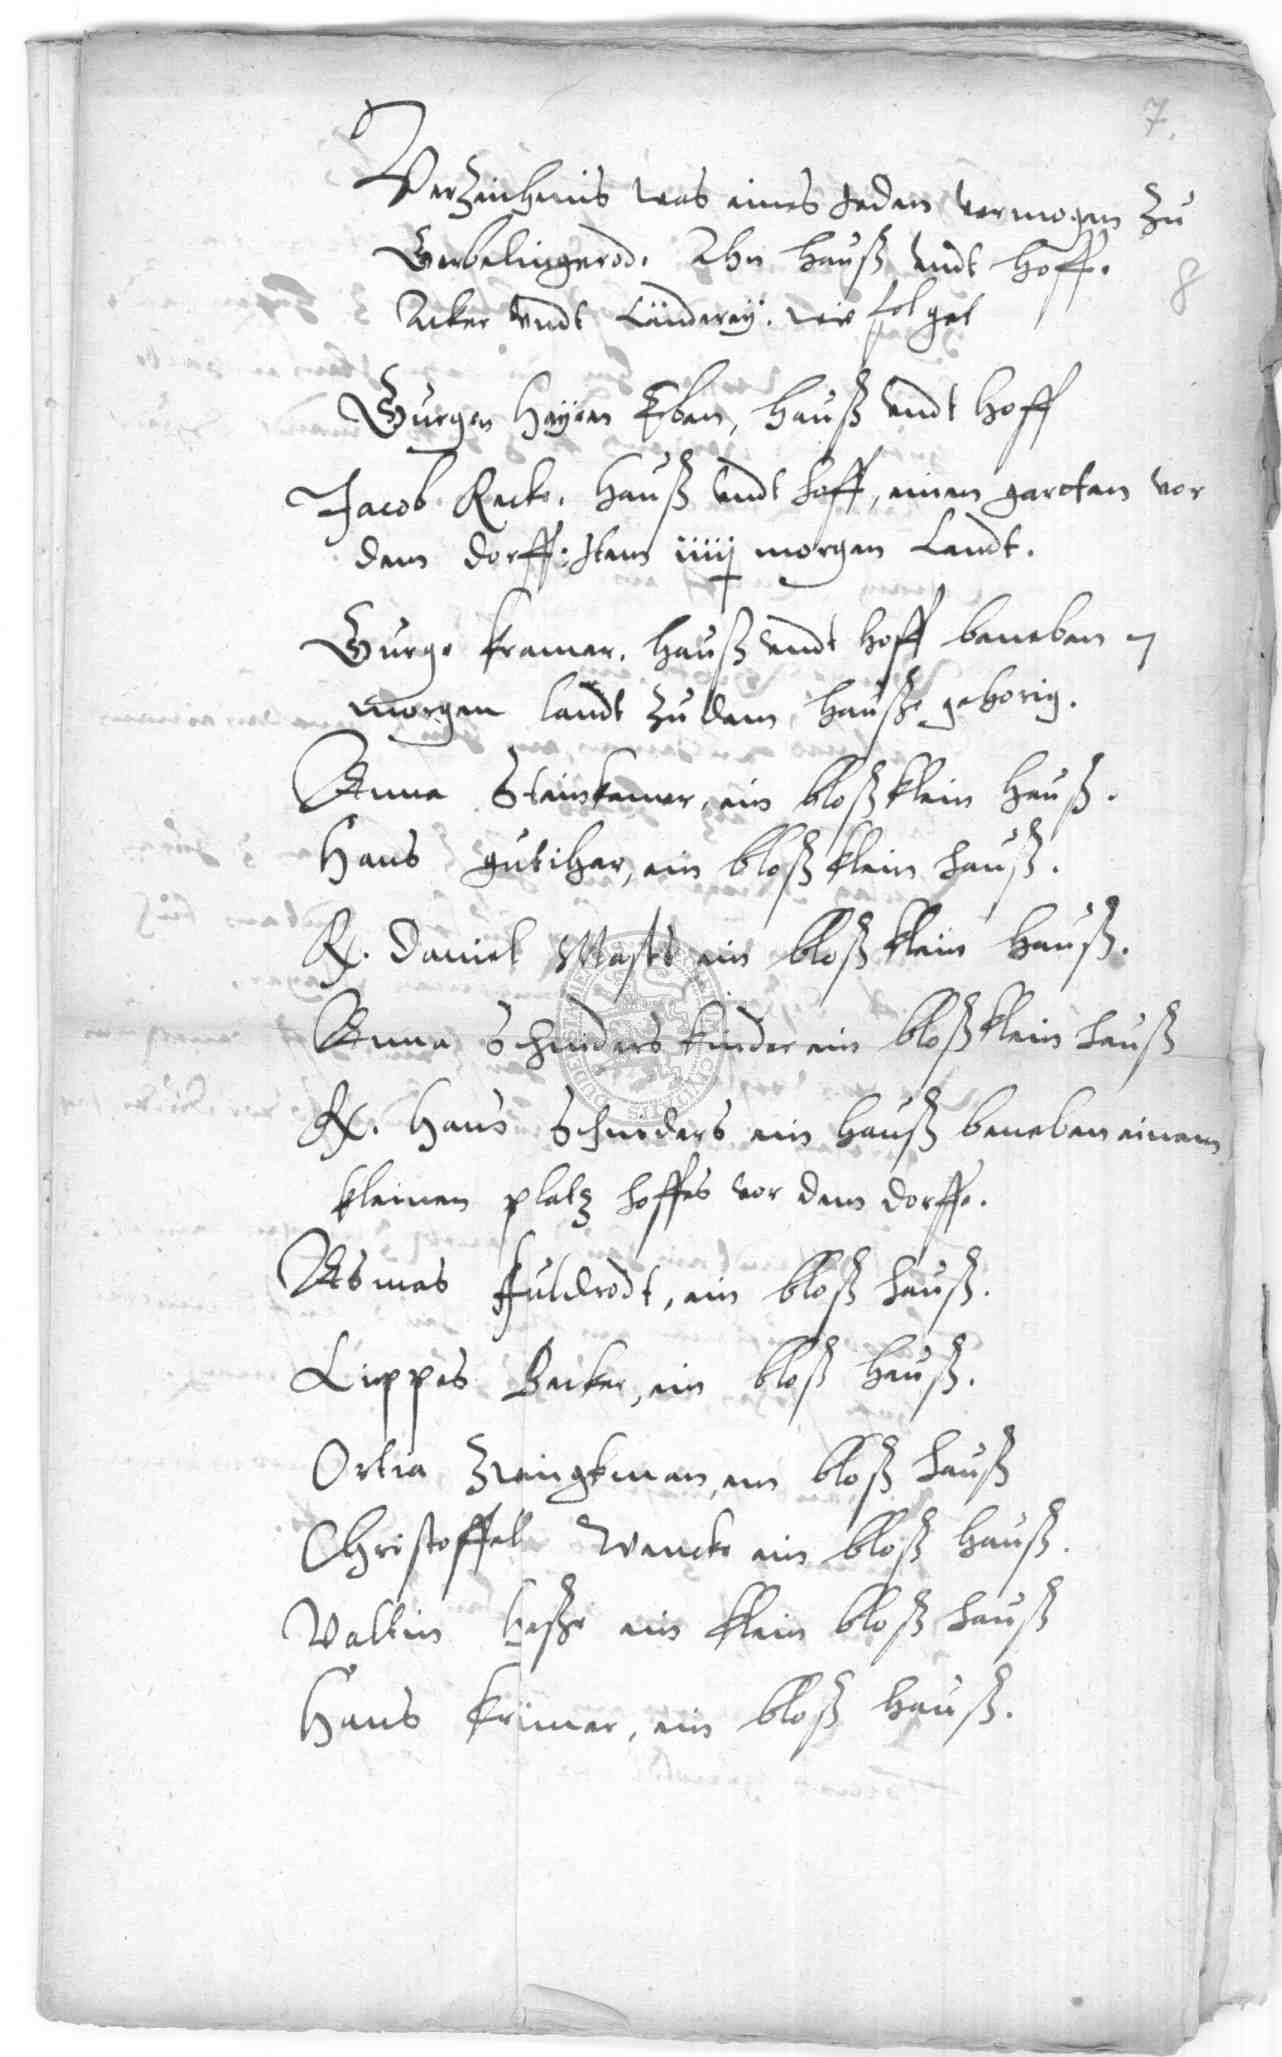 7.
Verzeichenis was eines Jeden vermogen zu
Gerbelingerod. Ahn hauß undt hoffe.
8
Acker undt Länderey. wie folget
Gurgen Heyen Erben, hauß undt hoff
Jacob Recke. hauß undt hoff, einen garotten vor
dem dorff: Item iiiij morgen Landt.
Gurge kramer. hauß undt hoff beneben 7
morgen landt zu dem hauße gehorig.
Anna Steinkamer, ein bloß klein hauß.
Hans gutihar, ein bloß klein hauß.
R. Daniel ein bloß klein hauß.
Anna Schniders kinder ein bloß klein hauß
R. Hans Schniders ein hauß beneben einem
kleinen platz hoffes vor dem dorffe.
Asmas Fuldrodt, ein bloß hauß.
Lippes Becker, ein bloß hauß.
Ortia Zwingkman, ein bloß hauß
Christoffel Wencke ein bloß hauß.
Valtin heße ein klein bloß hauß
Hans krimer, ein bloß hauß.